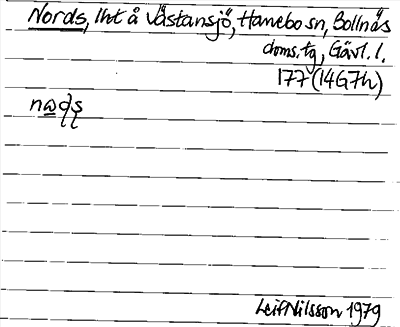 Nords, lht å Västansjö, Hanebo sn, Bollnäs
doms.tg, Gävl. l.
177 (14G7h)
Leif Nilsson 1979